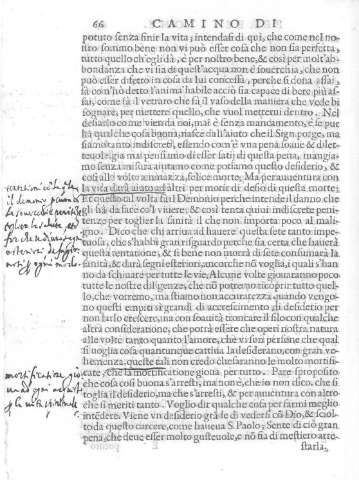 66 CAMINO DI
potuto senza finir la vita; intendasi di qui, che come nel no-
stro sommo bene non vi può esser cosa che non sia perfetta,
tutto quello ch'egli dà, è per nostro bene, & così per molt'ab-
bondanza che vi sia di quest'acqua non è souerchia, che non
può esser difetto in cosa da lui concessa, perche se dona assai,
fà com'hò detto l'anima habile acciò sia capace di bere più as-
sai, come fà il vetraro che fà il vaso della maniera che vede bi
sognare, per metterui quello, che vuol metterui dentro. Nel
desiarlo come vien da noi, mai è senza mancamento, & se pur
hà qualche cosa buona, nasce dall'aiuto che il Sign. porge, ma
siamo tanto indiscreti, essendo com'è vna pena soaue & dilet-
teuole, già mai pensiamo di esser satij di questa pena, mangia-
mo senza misura, aiutamo come potiamo questo desiderio, &
così alle volte ammazza, felice morte; Ma per auuentura con
la vita darà aiuto ad altri per morir di desio di questa morte;
E questo tal volta fà il Demonio perche intende il danno che
gli hà da fare co'l viuere, & così tenta quiui indiscrete peni-
tenze per togliere la sanità il che non importa poco al mali-
gno. Dico che chi arriua ad hauere questa sete tanto impe-
tuosa, che s'habbi gran risguardo perche sia certa che hauerà
questa tentatione, & si bene non morirà di sete consumarà la
sanità, & darà segni esteriori, ancor che nõ voglia, i quali s'han
no da schiuare per tutte le vie, Alcune volte giouaranno poco
tutte le nostre diligenze, che nõ potremo ricoprir tutto quel-
lo, che vorremo, ma stiamo con accuratezza quando vengo-
no questi empiti sì grandi di accrescimento del desiderio per
non farlo crescere, ma con soauità troncare il filo con qualche
altra consideratione, che potrà essere che operi nostra natura
alle volte tanto quanto l'amore, che vi sono persone che qual
si voglia cosa quantunque cattiua la desiderano, con gran ve-
hemenza, queste tali non credo che saranno le molto mortifi-
cate, che la mortificatione gioua per tutto. Pare sproposito
che cosa così buona s'arresti, ma non è, che io non dico. che si
toglia il desiderio, ma che s'arresti, & per auuentura con altro
che si meriti tanto. Voglio dir qualche cosa per farmi meglio
intendere. Viene vn desiderio grãde di vedersi cũ Dio, & sciol-
to da questo carcere, come haueua S. Paolo; Sente di ciò gran
pena, che deue esser molto gusteuole, nõ fia di mestiero arre-
E starla,
il demonio
mortificatione gio